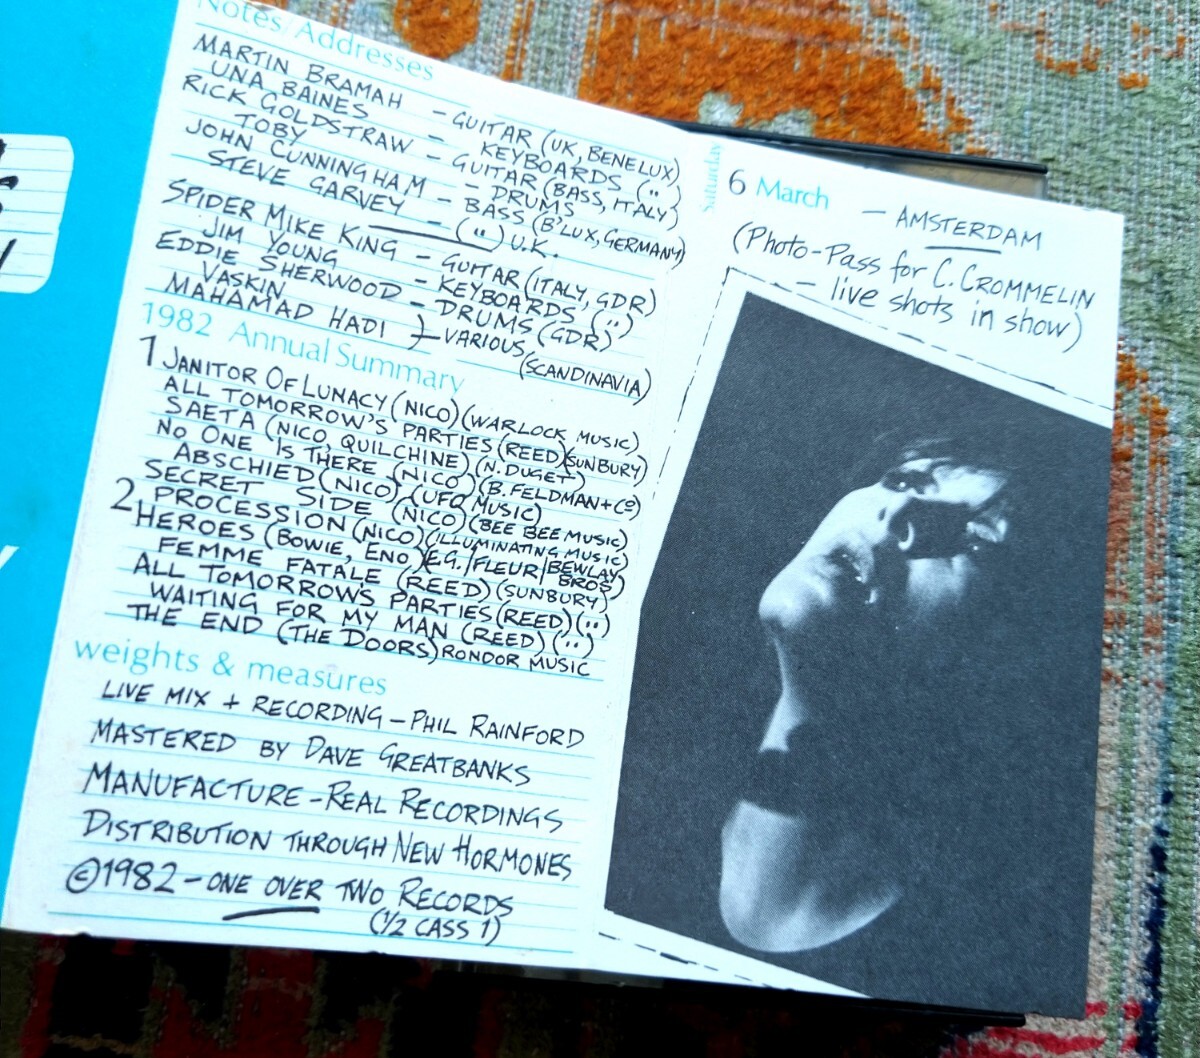 Notes/Addresses
MARTIN BRAMAH – GUITAR (UK, BENELUX)
UNA BAINES – KEYBOARDS (")
RICK GOLDSTRAW – GUITAR (BASS, ITALY)
TOBY – DRUMS
JOHN CUNNINGHAM – BASS (B'LUX, GERMANY)
STEVE GARVEY – (") U.K.
SPIDER MIKE KING – GUITAR (ITALY, GDR)
JIM YOUNG – KEYBOARDS (")
EDDIE SHERWOOD – DRUMS (GDR)
VASKIN
MAHAMAD HADI } – VARIOUS (SCANDINAVIA)
1982 Annual Summary
1 JANITOR OF LUNACY (NICO) (WARLOCK MUSIC)
ALL TOMORROW'S PARTIES (REED) (SUNBURY)
SAETA (NICO, QUILCHINE) (N. DUGET)
NO ONE IS THERE (NICO) (B. FELDMAN + Co)
ABSCHIED (NICO) (UFO MUSIC)
SECRET SIDE (NICO) (BEE BEE MUSIC)
2 PROCESSION (NICO) (ILLUMINATING MUSIC)
HEROES (BOWIE, ENO) (E.G./FLEUR/BEWLAY BROS)
FEMME FATALE (REED) (SUNBURY)
ALL TOMORROWS PARTIES (REED) (")
WAITING FOR MY MAN (REED) (")
THE END (THE DOORS) RONDOR MUSIC
weights & measures
LIVE MIX + RECORDING – PHIL RAINFORD
MASTERED BY DAVE GREATBANKS
MANUFACTURE – REAL RECORDINGS
DISTRIBUTION THROUGH NEW HORMONES
©1982 – ONE OVER TWO RECORDS
(1/2 CASS 1)
Saturday
6 March – AMSTERDAM
(Photo-Pass for C. CROMMELIN
– live shots in show)